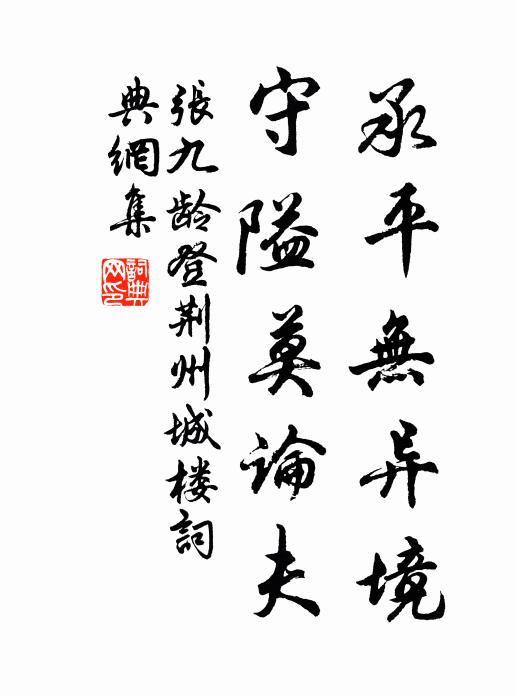 承平無异境
守隘莫論夫
張九龄登荆州城楼詞
典網集
詞典网印